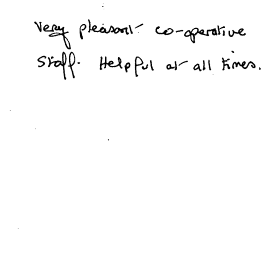 Very pleasant co-operative
Staff. Helpful at all times.